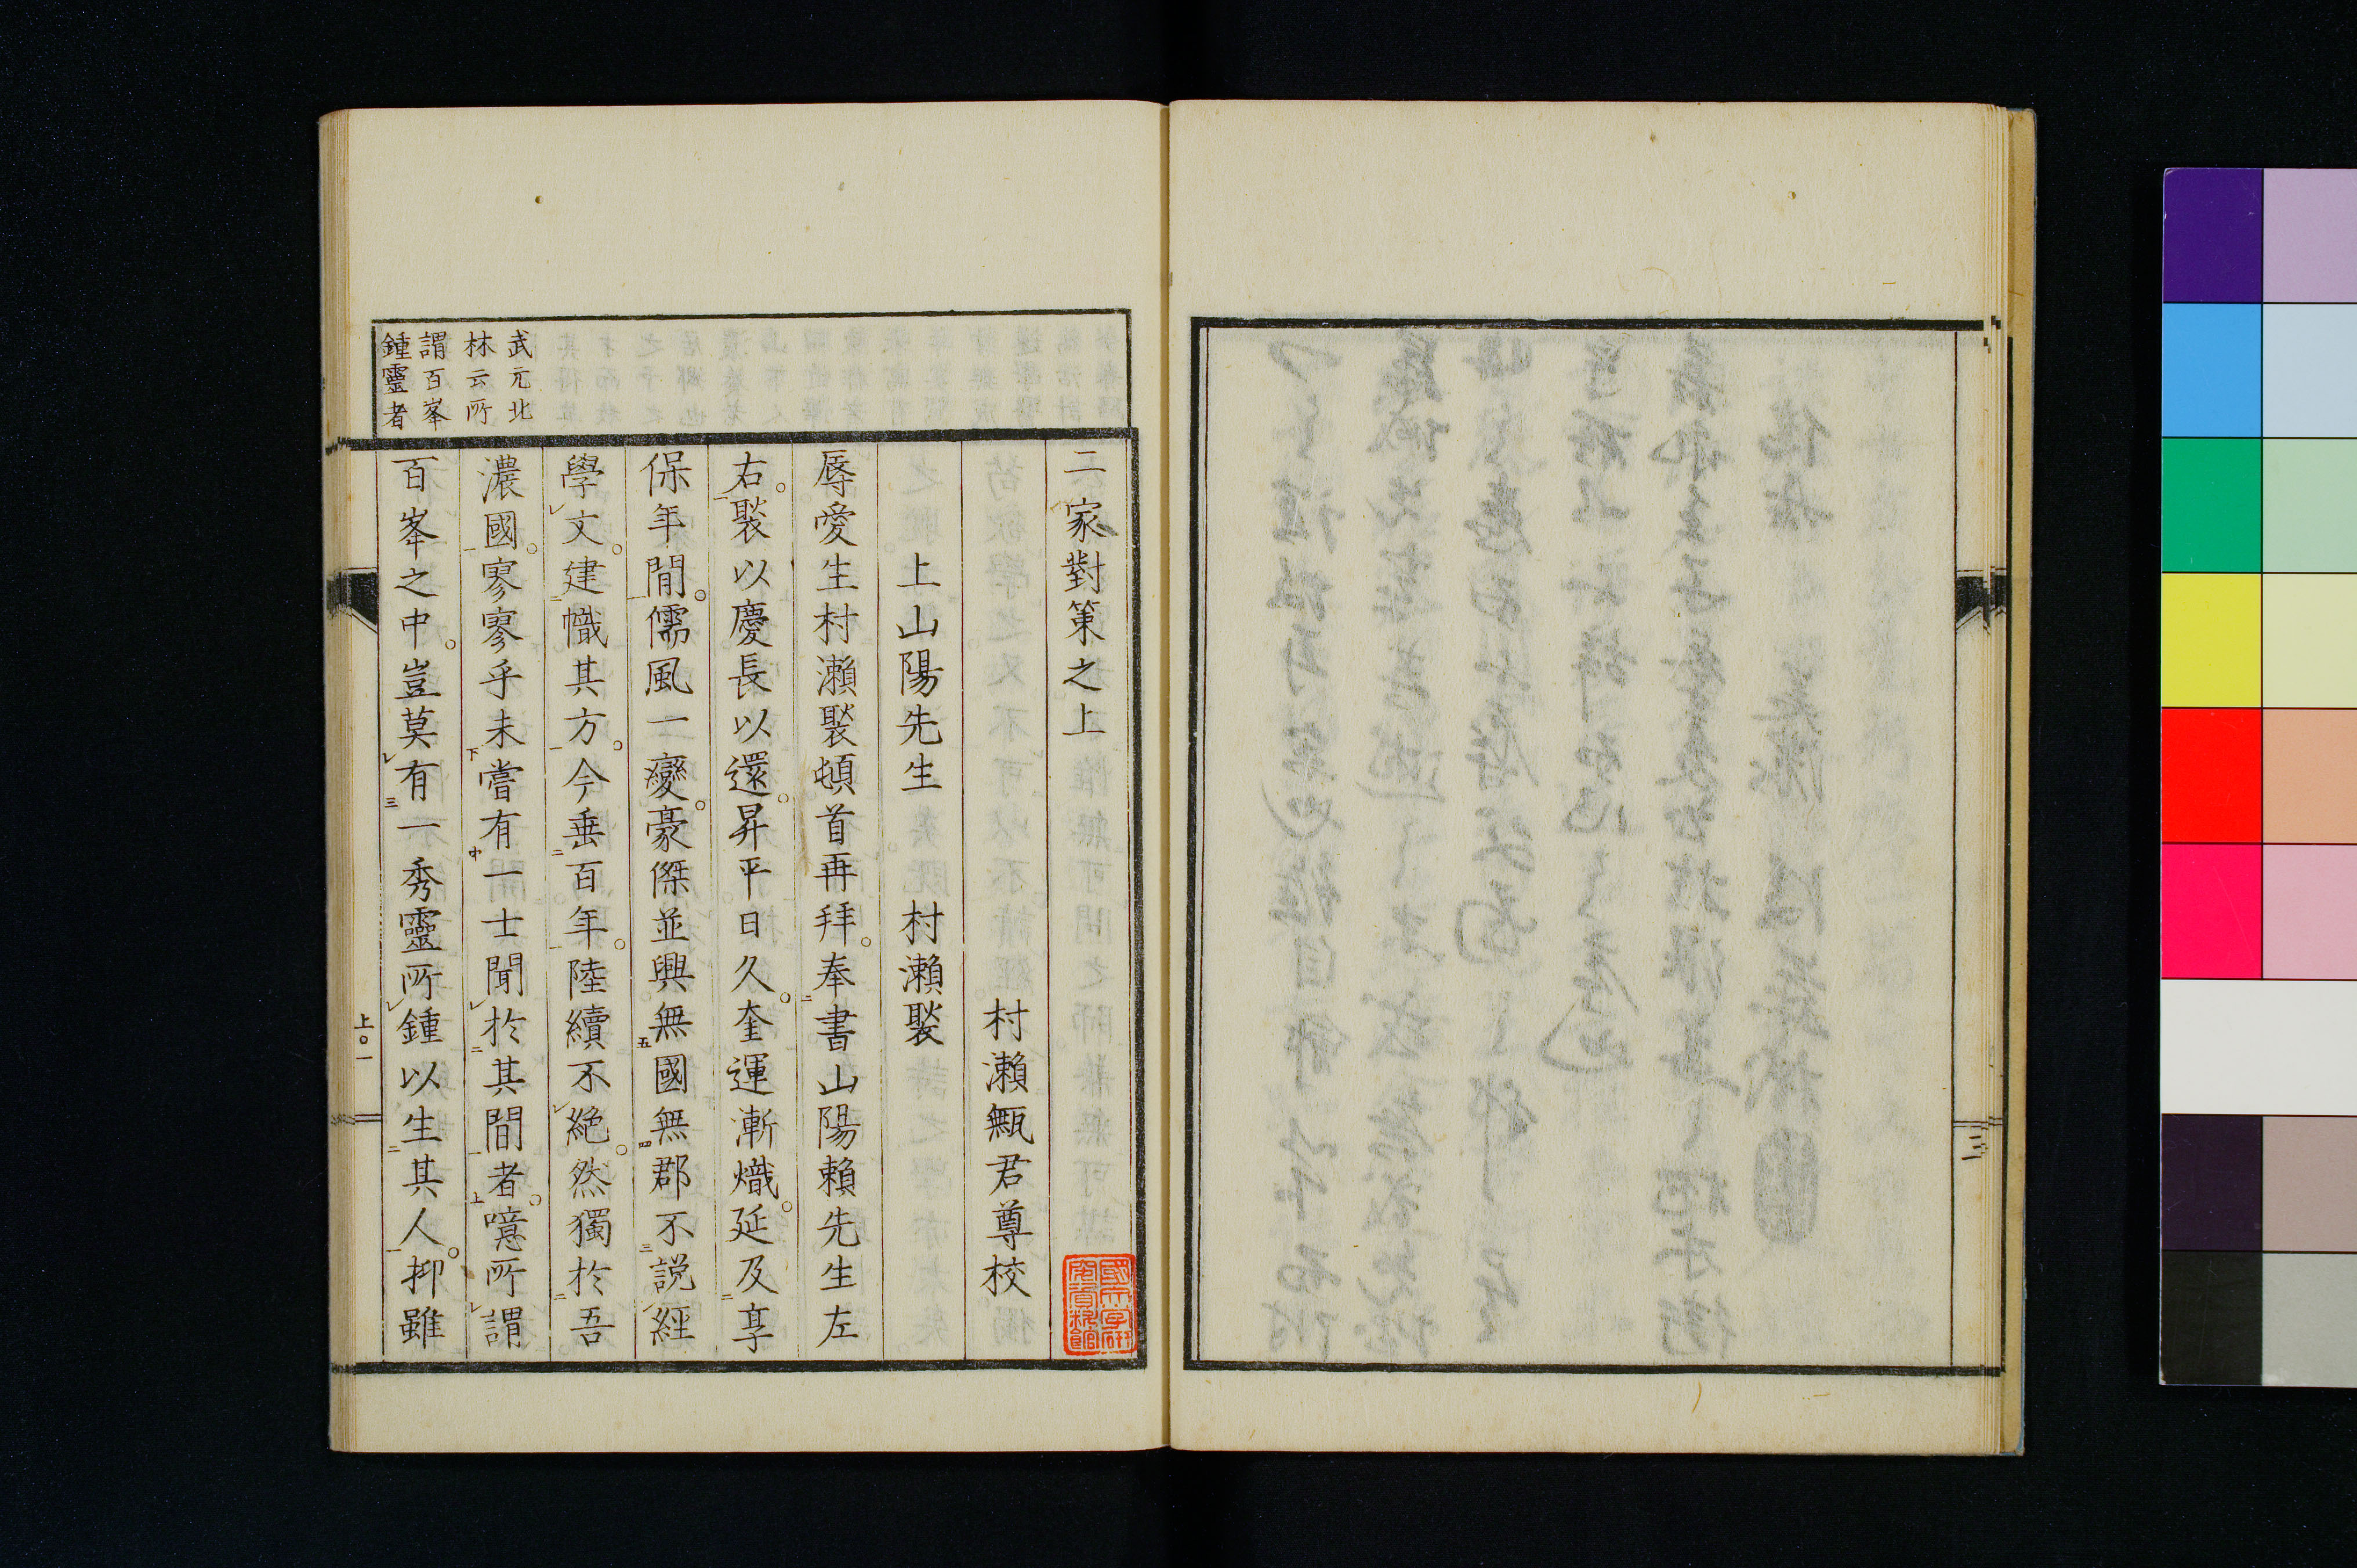 三
二家對策之上
村瀨甌君尊校
上山陽先生　村瀨褧
辱愛生村瀨褧頓首再拜。奉書山陽賴先生左
右。褧以慶長以還。昇平日久。奎運漸熾。延及享
保年間。儒風一變。豪傑並興。無國無郡不説經
學文。建幟其方。今垂百年。陸續不絶。然獨於吾
濃國。寥寥乎未嘗有一士聞於其間者。噫所謂
百峯之中。豈莫有一秀靈所鍾以生其人。抑雖
武元北
林云所
謂百峯
鍾靈者
上〇一